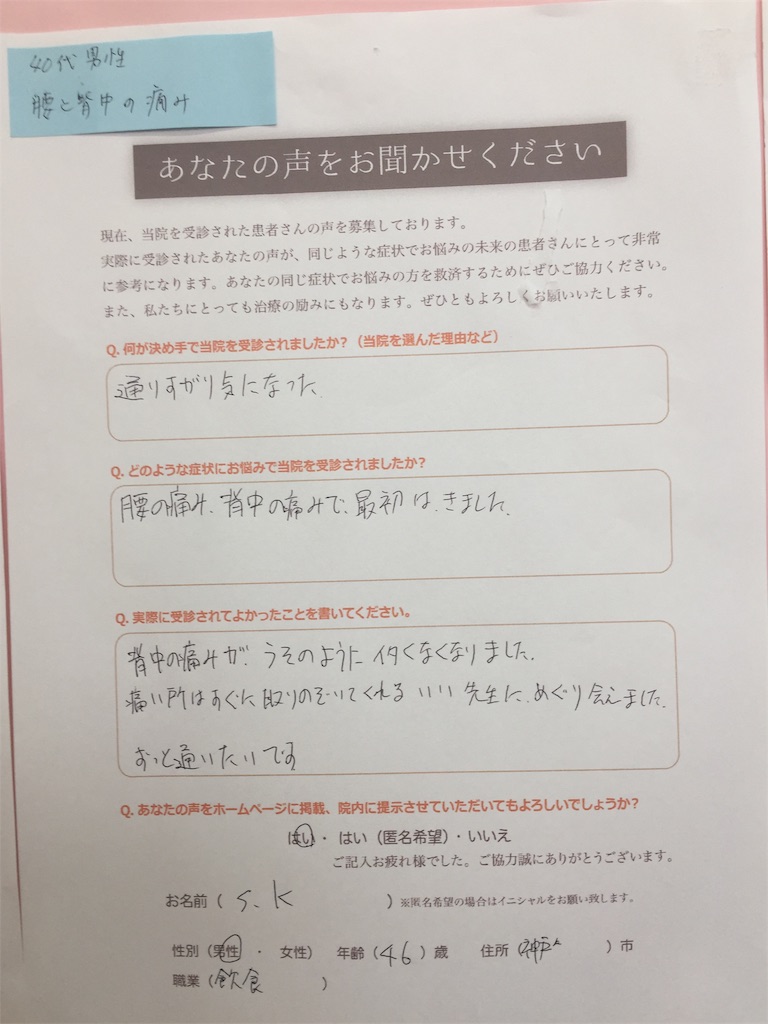 40代 男性
腰と背中の痛み
あなたの声をお聞かせください
現在、当院を受診された患者さんの声を募集しております。
実際に受診されたあなたの声が、同じような症状でお悩みの未来の患者さんにとって非常
に参考になります。あなたの同じ症状でお悩みの方を救済するためにぜひご協力ください。
また、私たちにとっても治療の励みにもなります。ぜひともよろしくお願いいたします。
Q. 何が決め手で当院を受診されましたか?(当院を選んだ理由など)
通りすがり気になった.
Q. どのような症状にお悩みで当院を受診されましたか?
腰の痛み、背中の痛みで、最初は、きました。
Q. 実際に受診されてよかったことを書いてください。
背中の痛みが、うそのように イタくなくなりました。
痛い所はすぐに取りのぞいてくれる いい 先生に、めぐり会えました。
ずっと通いたいです
Q. あなたの声をホームページに掲載、院内に提示させていただいてもよろしいでしょうか?
はい・ はい(匿名希望)・いいえ
ご記入お疲れ様でした。ご協力誠にありがとうございます。
お名前( S.K )※匿名希望の場合はイニシャルをお願い致します。
性別(男性 ・ 女性) 年齢(46)歳 住所(神戸 )市
職業(飲食 )